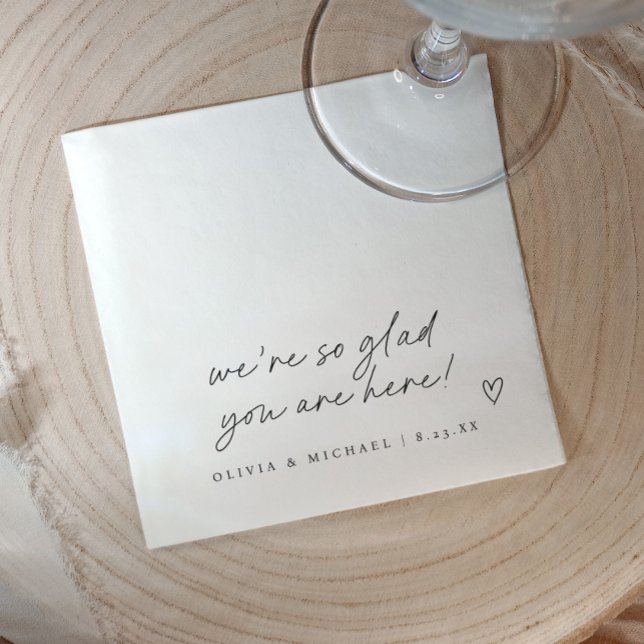 we're so glad
you are here!
OLIVIA & MICHAEL | 8.23.XX